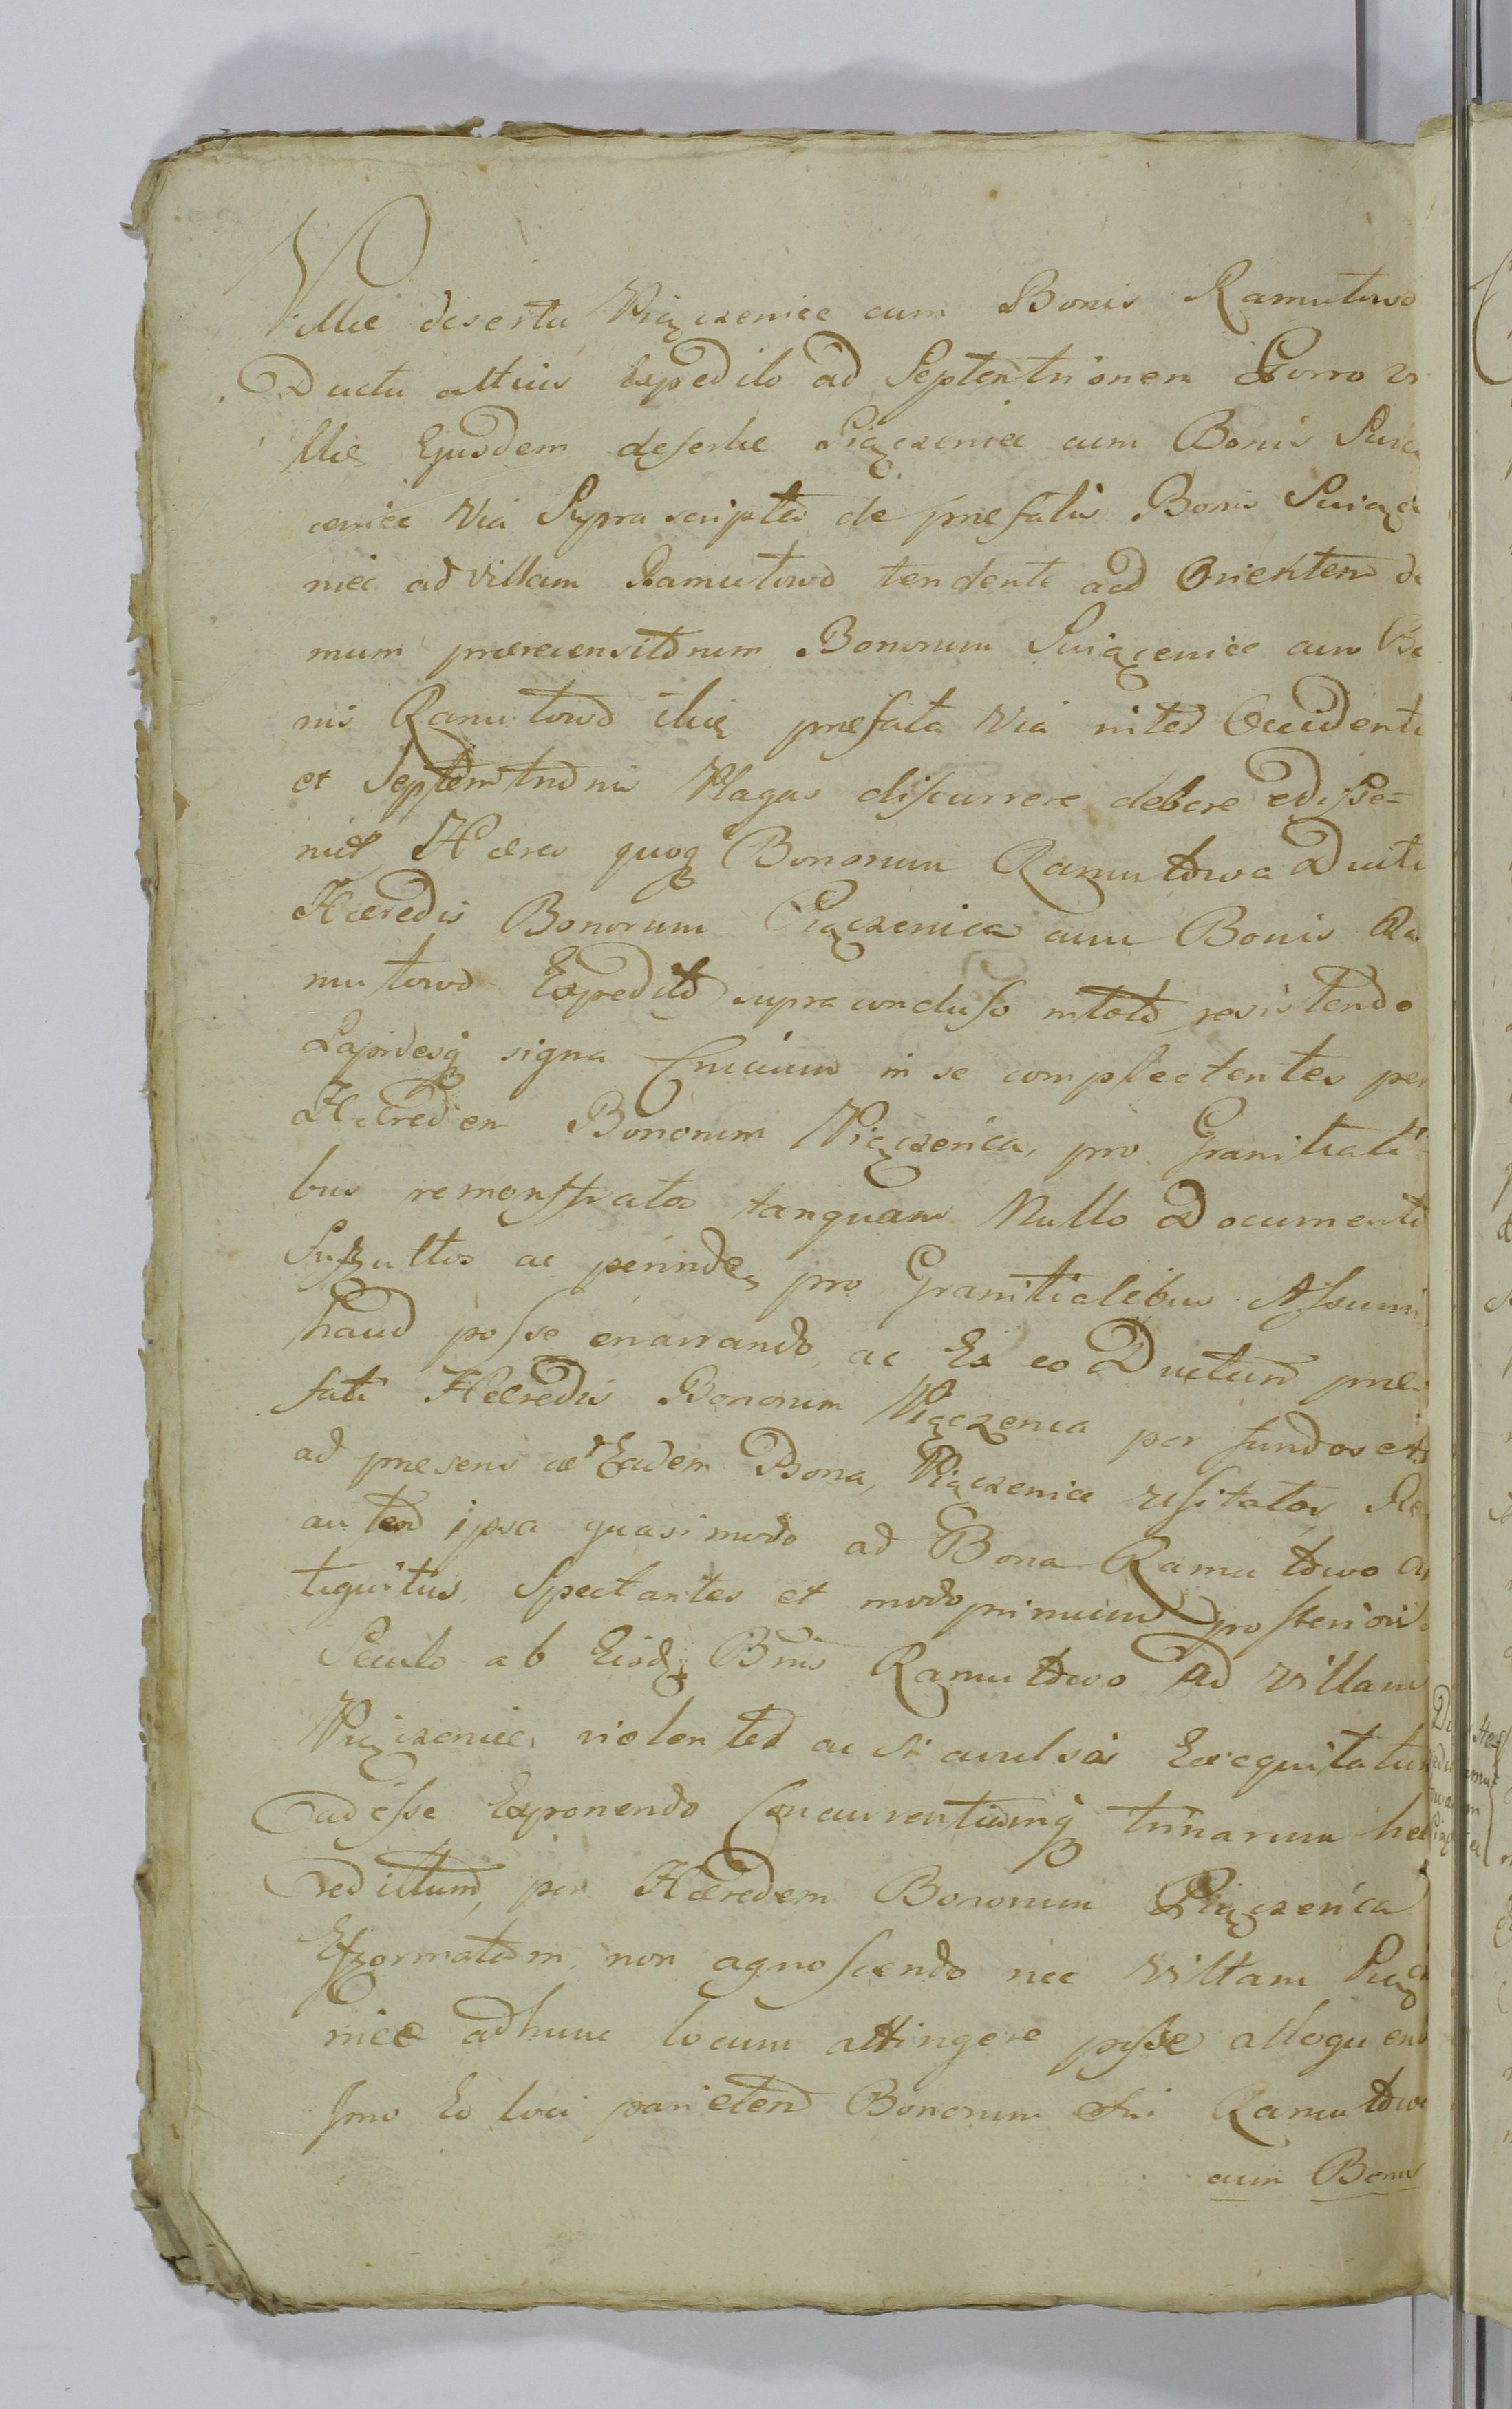 Villæ desertæ Piączeniec cum Bonis Ramutowo
Ductu altius Expedito ad Septentrionem Porro vi
llæ Ejusdem desertæ Piączeniec cum Bonis
ceniec via Suprascripta de præfatis Bonis
niec ad villam Ramutowo tendente ad Orientem de
mum prærecensitorum Bonorum cum Bo
nis Ramutowo præfata via inter Occidentis
et Septemtrionis Plagas discurrere debere edisse=
ruit Hæres quoq Bonorum Ramutowa Ductu
Hæredis Bonorum Piączenica cum Bonis Ra
mutowo Expedito supra concluso in toto resistendo
Lapidesq signa Crucium in se complectentes per
Hæredem Bonorum Piączenica, pro Granitiali
bus remonstratos tanquam Nullo Documento
Suffultos ac perinde pro Granitialibus Assumi
haud posse enarrando, ac Ex eo Ductum præ
fati Hæredis Bonorum Piączenica per fundos
ad præsens ad Eadem Bona, Piączeniec usitatos Re
autem ipsa quasimodo ad Bona Ramutowo an
tiquitus Spectantes et modo primum posteriori
Seculo ab Eisdem Bnis Ramutowo ad villam
Piączeniec, violenter ac si avulsos Exequitatum
adesse Exponendo Concurrentiamq trinarum hæ
reditatum, per Hæredem Bonorum Piączenica
Efformatam, non agnoscendo nec villam
niec adhunc locum attingere posse alloquendo
Imo Eo loci parietem Bonorum Sui Ramutowo
cum Bonis